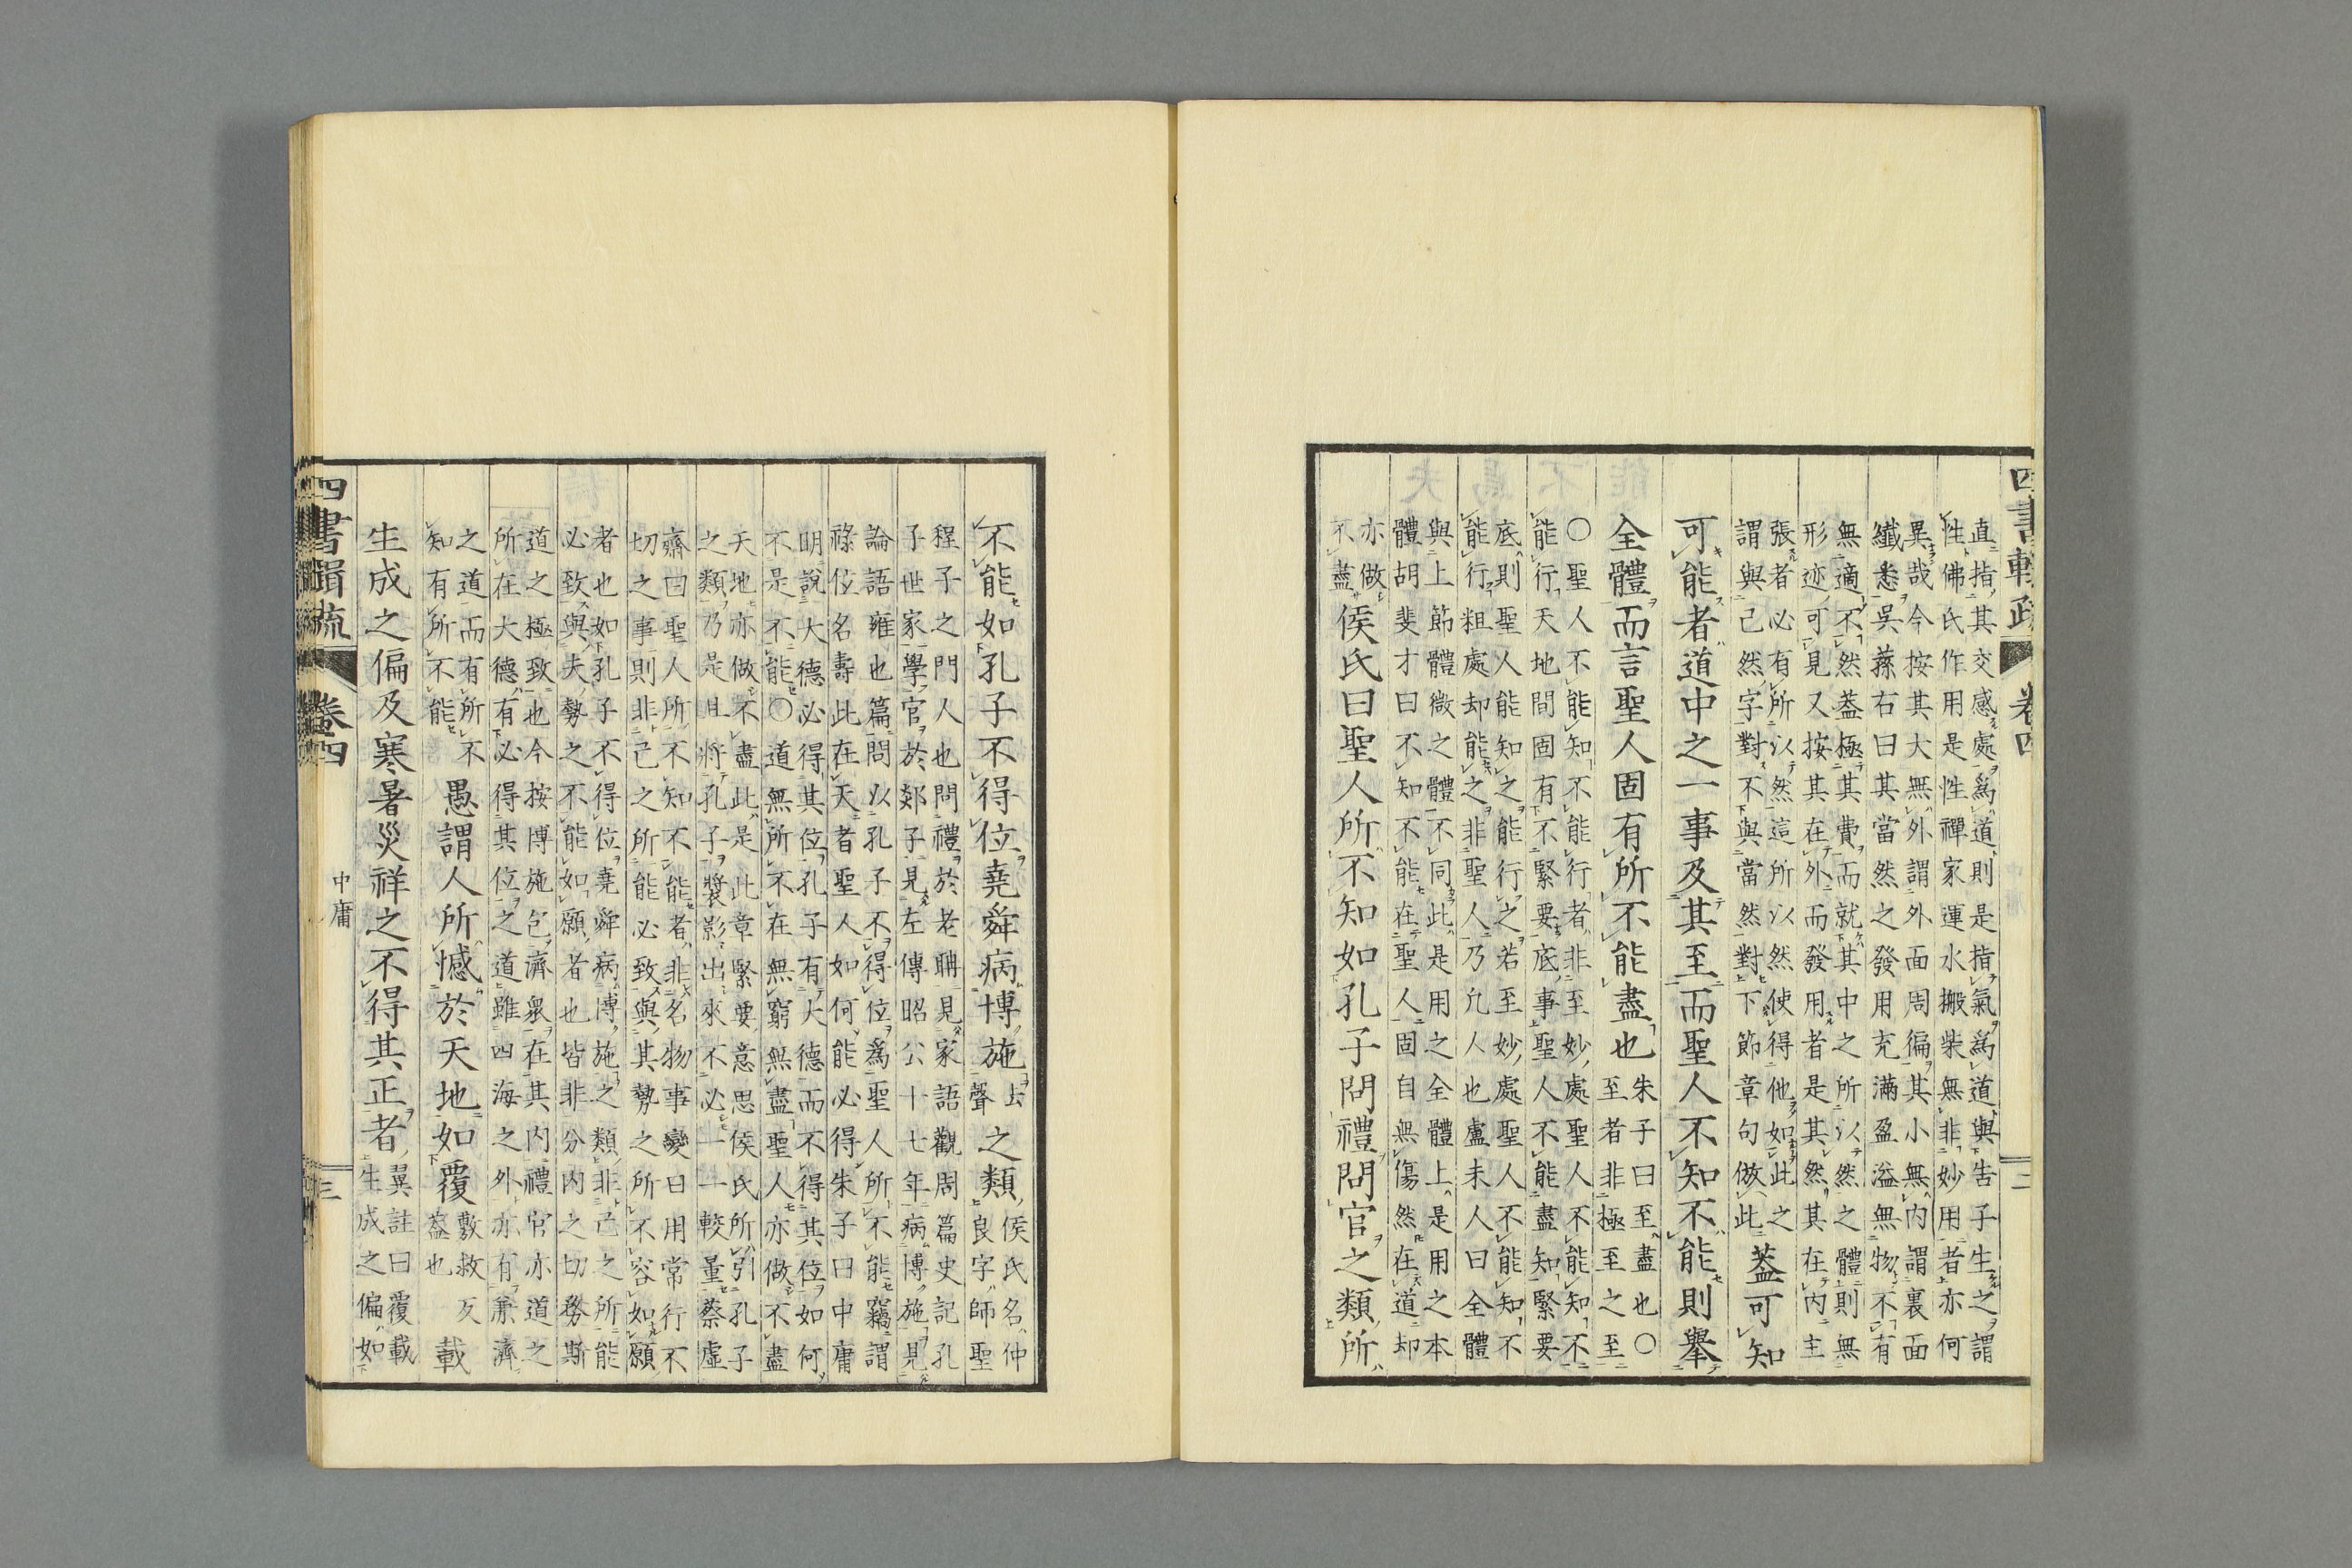 四書輯疏 卷四
直指其交感處爲道則是指氣爲道與告子生之謂
性佛氏作用是性禪家運水搬柴無非妙用者亦何
異哉今按其大無外謂外面周徧其小無內謂裏面
纎悉吳蓀右曰其當然之發用充滿盈溢無物不有
無適不然蓋極其費而就其中之所以然之體則無
形迹可見又按其在外而發用者是其然其在內主
張者必有所以然這所以然使得他如此之
謂與己然字對不與當然對下節章句倣此
蓋可知
可能者道中之一事及其至而聖人不知不能則舉
全體而言聖人固有所不能盡也
朱子曰至盡也〇
至者非極至之至
〇聖人不能知不能行者非至妙處聖人不能知不
能行天地間固有不緊要底事聖人不能盡知緊要
底則聖人能知之能行之若至妙處聖人不能知不
能行粗處却能之非聖人乃凡人也盧未人曰全體
與上節體微之體不同此是用之全體上是用之本
體胡斐才曰不知不能在聖人固自無傷然在道却
亦做
不盡
侯氏曰聖人所不知如孔子問禮問官之類所
不能如孔子不得位堯舜病博施
去
聲
之類
侯氏名仲
良字師聖
程子之門人也問禮於老聃見家語觀周篇史記孔
子世家學官於郯子見左傳昭公十七年病博施見
論語雍也篇問以孔子不得位爲聖人所不能竊謂
祿位名壽此在天者聖人如何能必得朱子曰中庸
明說大德必得其位孔子有大德而不得其位如何
不是不能〇道無所不在無窮無盡聖人亦做不盡
天地亦做不盡此是此章緊要意思侯氏所引孔子
之類乃是且將孔子裝影出來不必一一較量蔡虛
齋曰聖人所不知不能者非名物事變日用常行不
切之事則非己之所能必致與其勢之所不容如願
者也如孔子不得位堯舜病博施之類非己之所能
必致與夫勢之不能如願者也皆非分內之切務斯
道之極致也今按博施包濟衆在其內禮官亦道之
所在大德有必得其位之道雖四海之外亦有兼濟
之道而有所不
知有所不能
愚謂人所憾於天地如覆
敷救反
蓋也
載
生成之偏及寒暑災祥之不得其正者
異註曰覆載
生成之偏如
四書輯疏 卷四 中庸 三